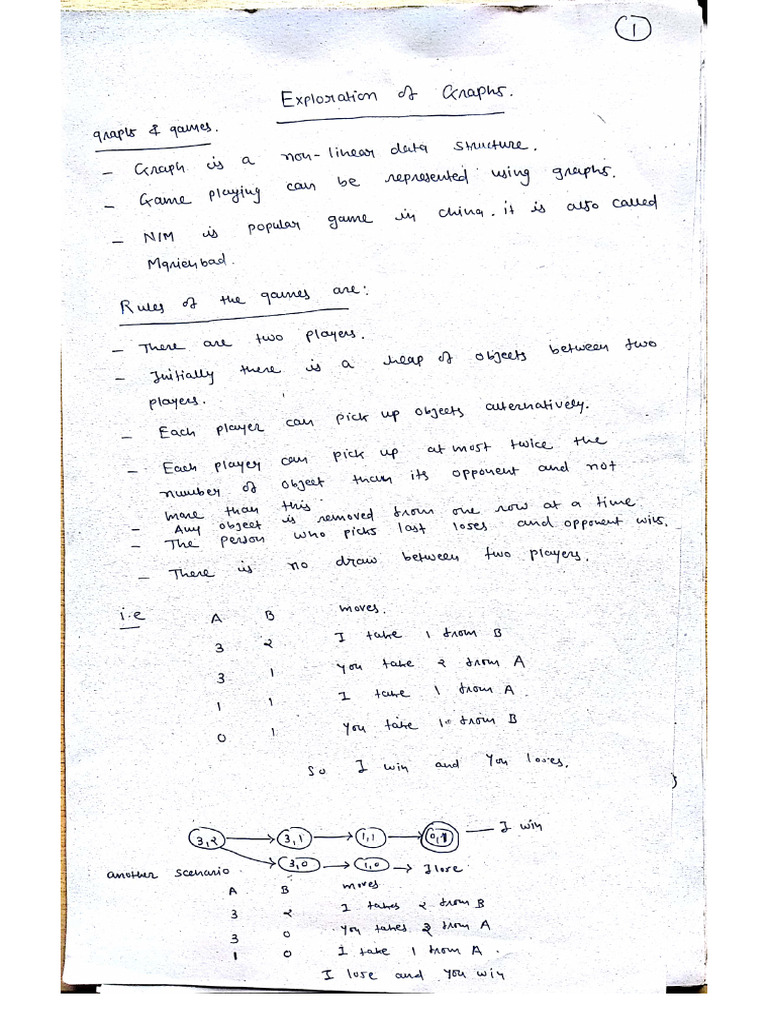 1
Exploration of Graphs.
graphs & games.
- Graph is a non-linear data structure.
- Game playing can be represented using graphs.
- NIM is popular game in china. it is also called
Marienbad.
Rules of the games are:
- There are two players.
- Initially there is a heap of objects between two
players.
- Each player can pick up objects alternatively.
- Each player can pick up at most twice the
number of object than its opponent and not
more than this
- Any object is removed from one row at a time
- The person who picks last loses and opponent wins.
- There is no draw between two players.
i.e A B moves.
3 2 I take 1 from B
3 1 You take 2 from A
1 1 I take 1 from A.
0 1 You take 1 from B
So I win and You loses.
3,2 3,1 1,1 0,1 I win
3,0 1,0 I lose
another scenario.
A B moves
3 2 I takes 2 from B
3 0 You takes 2 from A
1 0 I take 1 from A.
I lose and you win